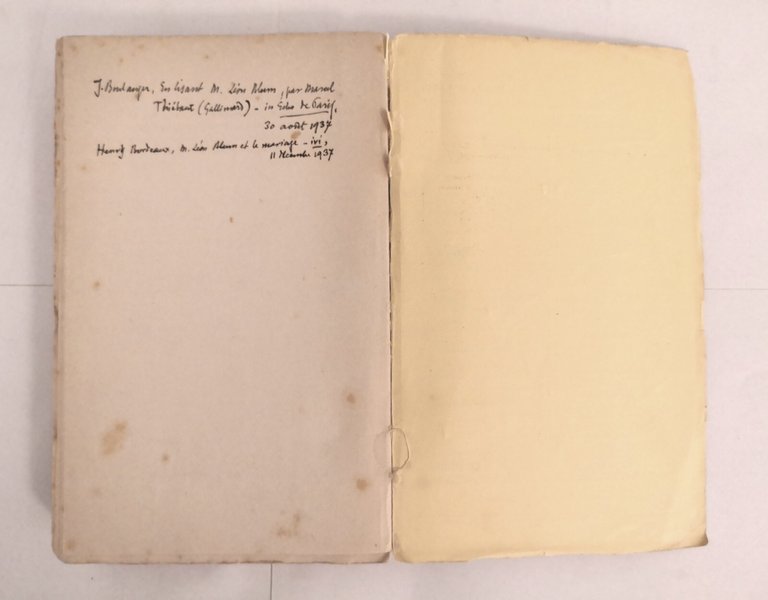 J. Boulanger, En lisant M. Léon Blum, par Marcel
Thiébaut (Gallimard) - in Echo de Paris,
30 août 1937
Henry Bordeaux, M. Léon Blum et le mariage - ivi,
11 décembre 1937